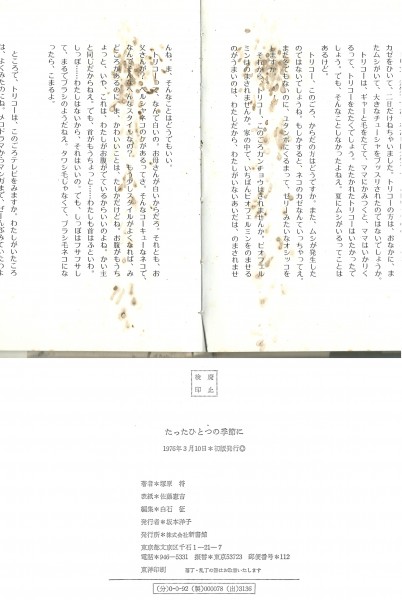 カゼをひいて、二日だけちゃいました。トリコーの方は、おなかに、ま
たムシがいて、大きなチューシャをブッスリされたのではないでしょうか。
トリコーは
しょう。でも、そんなことしなかったよね。夏にムシがいるってことは
あるけど。
トリコー、このごろ、からだの方はどうですか。また、ムシが発生した
のではないでしょうね。もしかすると、ネコのカゼなんていっちゃってえ、
まださむくもないのに、ユタンポにくるまって、ぜ
それから、トリコー、このごろカンチョウはされませんか。ビオフェル
ミンはのまされませんか。家の中で、いちばんビオフェルミンをのませる
のがうまいのは、わたしだから、わたしがいないあいだは、のまされませ
んね。ま、そんなことはどうでもいい。
トリコーって、なんで白いの。お母さんが白いからだろ。それとも、お
父さんが
なんで、そんな
ところがあるのに。ま、かわいいことは、かわいいけど。お腹がもうち
ょっと、いや、これは、わたしがお腹がでているからいいのよね。かい主
と同じだからねえ。でも、首がもうちょっと……わたしも首はふといわ。
しっぽは……わたしはないから、それはいいの。でも、しっぽはフサフサし
て、まるでブラシのようだねえ。タワシ毛じゃなくて、ブラシ毛ネコにな
ったら、こまるよ。
ところで、トリコーは、このごろテレビをみますか。わたしがいたころ
は、よくみたのにね。メロドラマからマンガまで、ぜ
廃止
検印
たったひとつの季節に
1976年3月10日＊初版発行©
著者＊塚原 将
表紙＊佐藤憲吉
編集＊白石 征
発行者＊坂本洋子
発行所＊株式会社新書館
東京都文京区千石1—21—7
電話＊946—5331 振替＊東京53723 郵便番号＊112
落丁・乱丁の際はお取替いたします
(分)0-0-92 (製)000078 (出)3136